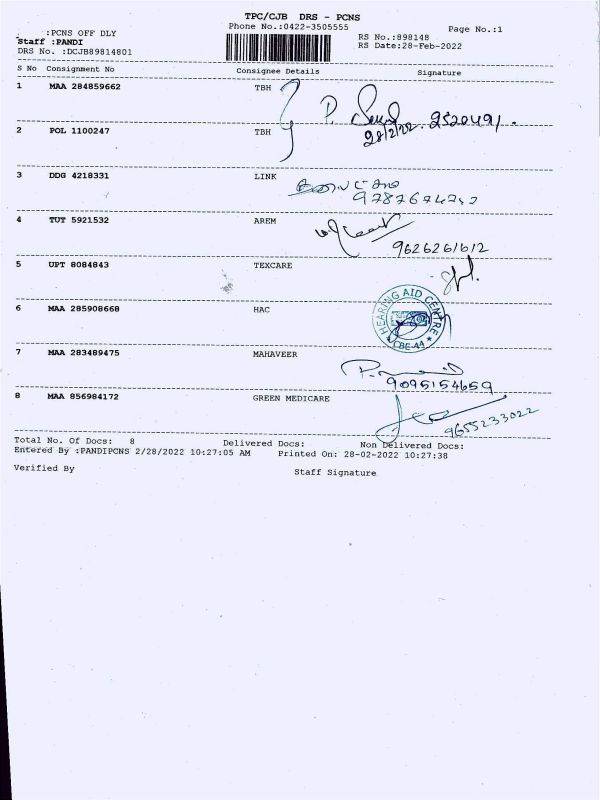 TPC/CJB DRS - PCNS
:PCNS OFF DLY
Phone No.:0422-3505555
Page No.:1
Staff :PANDI
RS No.:898148
DRS No. :DCJB89814801
RS Date:28-Feb-2022
S No Consignment No Consignee Details Signature
1 MAA 284859662 TBH
P.
28/2/22. 2520491.
2 POL 1100247 TBH
3 DDG 4218331 LINK
4 TUT 5921532 AREM
9626261612
5 UPT 8084843 TEXCARE
6 MAA 285908668 HAC
HEARING AID CENTRE
CBE-44
7 MAA 283489475 MAHAVEER
9095154659
8 MAA 856984172 GREEN MEDICARE
9655233022
Total No. Of Docs: 8 Delivered Docs: Non Delivered Docs:
Entered By :PANDIPCNS 2/28/2022 10:27:05 AM Printed On: 28-02-2022 10:27:38
Verified By Staff Signature